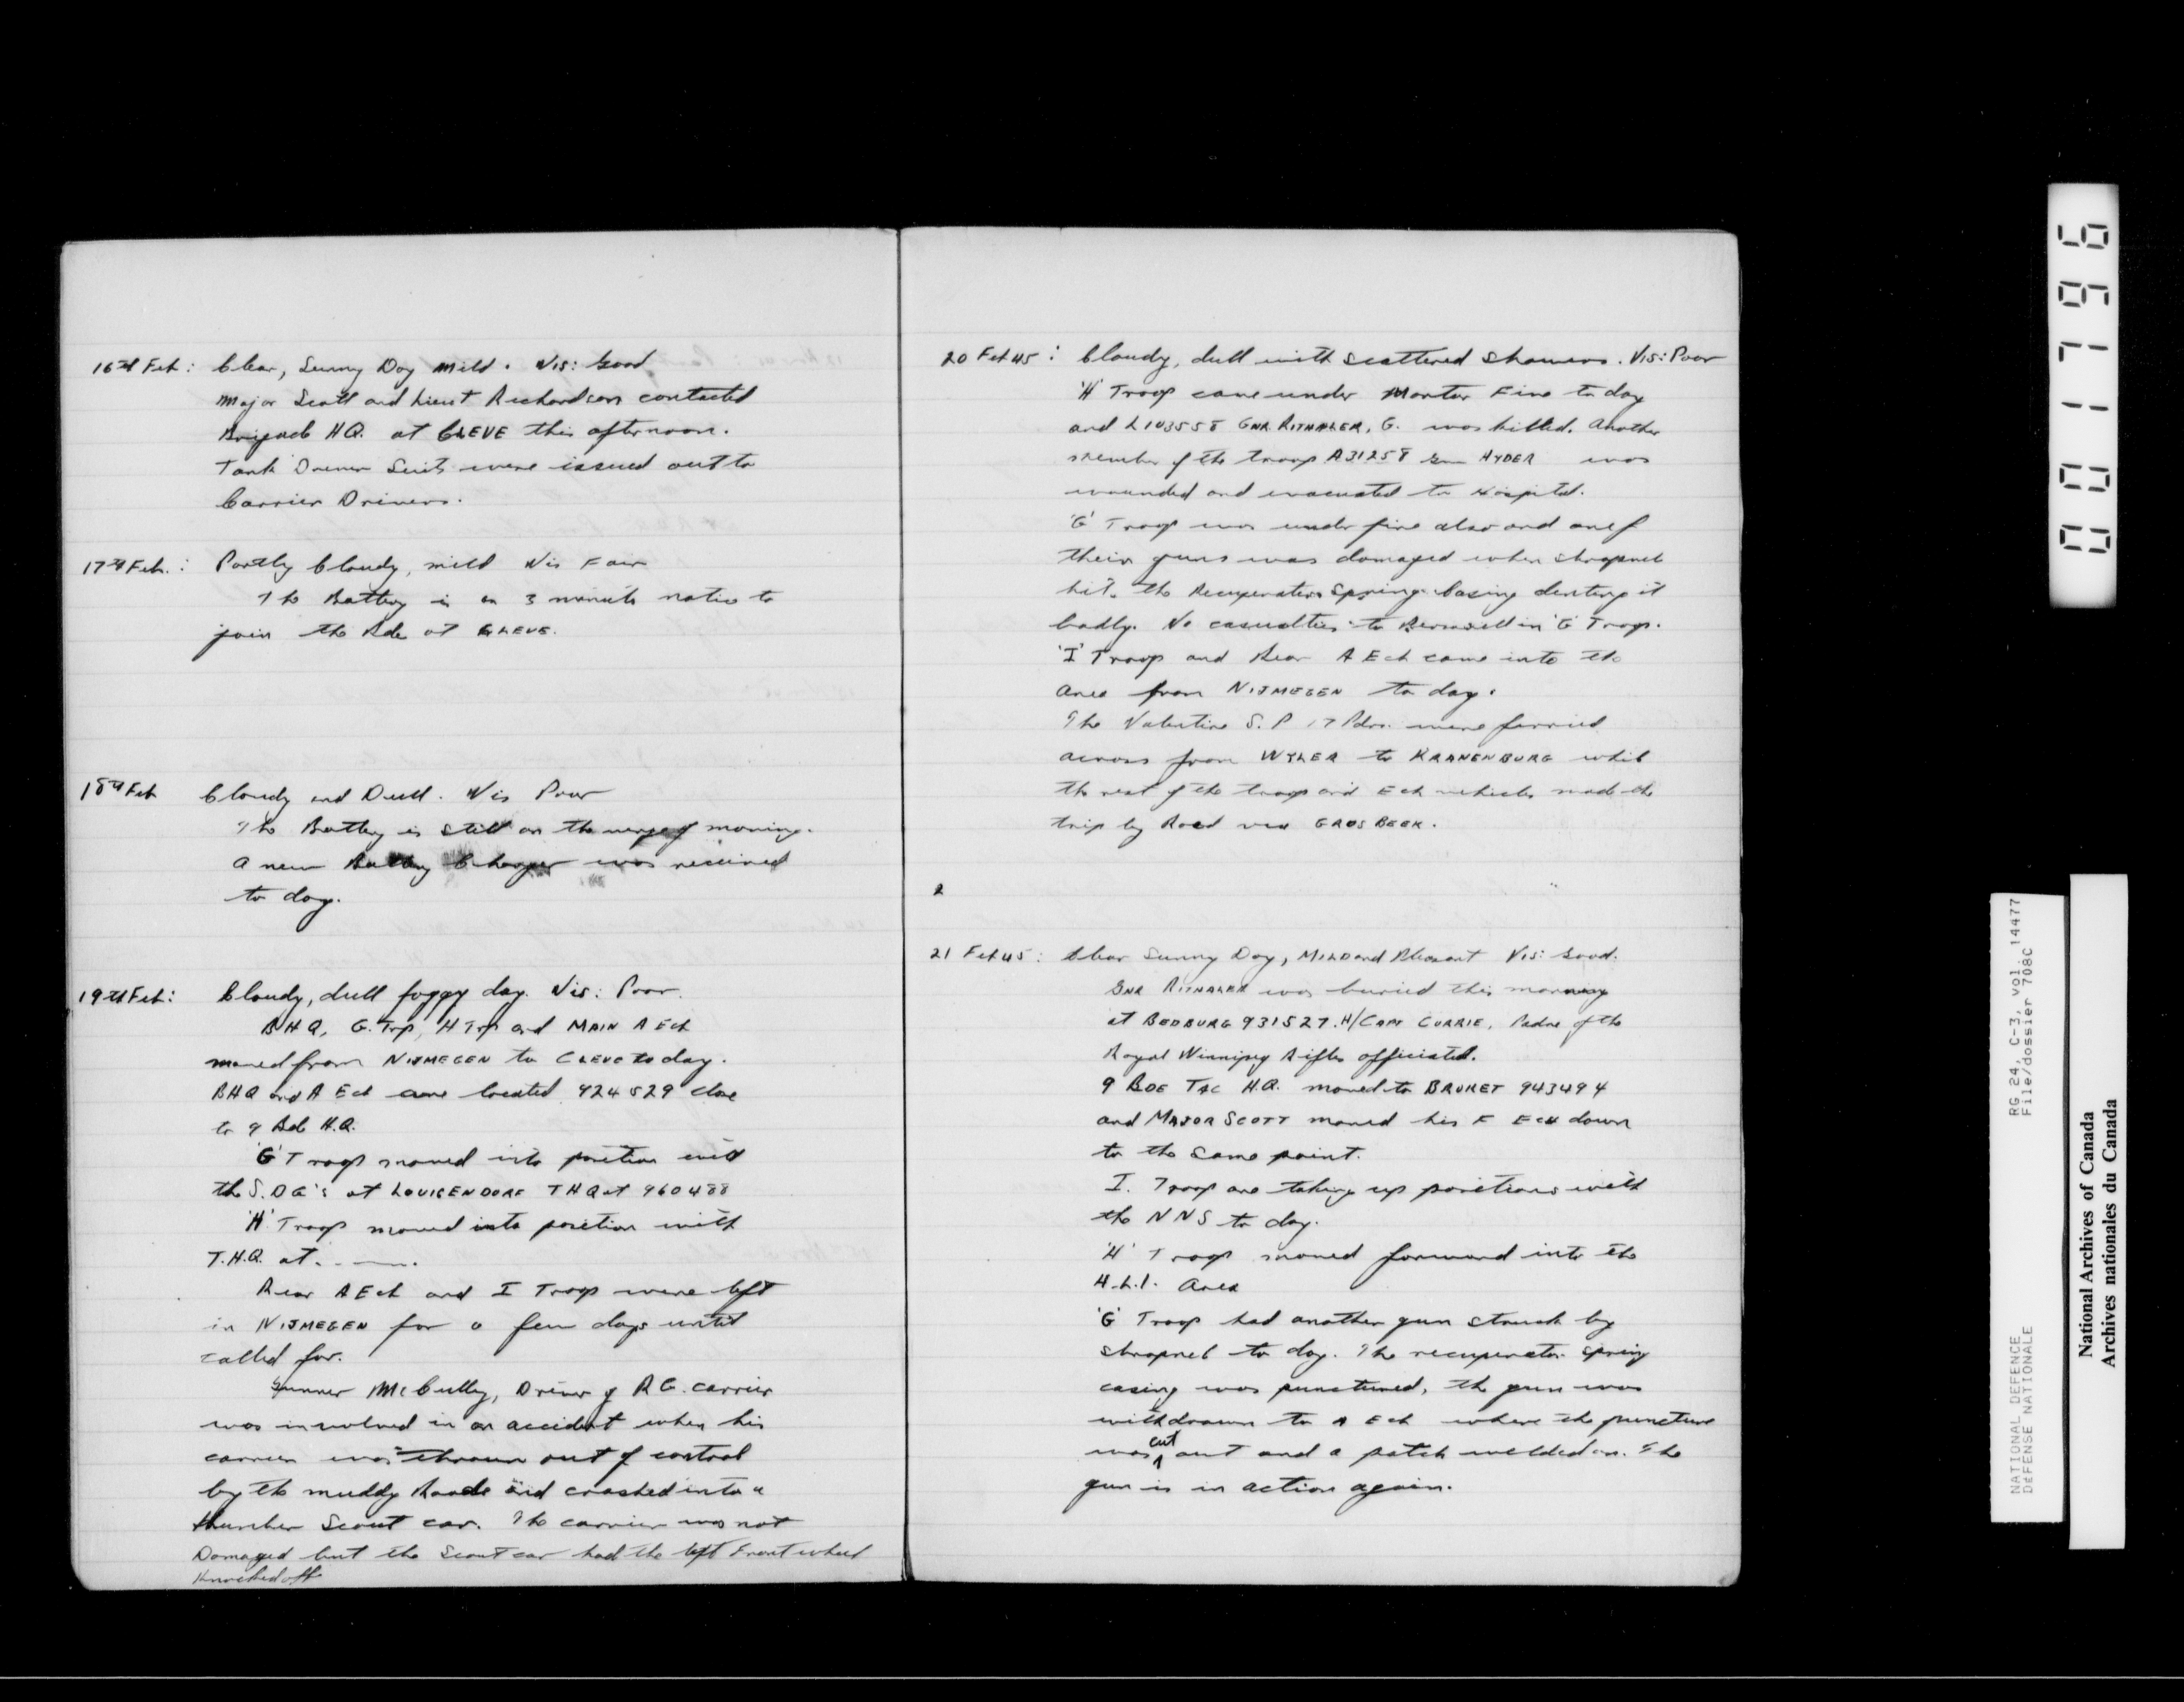 16th Feb: Clear, Sunny Day Mild. Vis: Good
Major Scott and Lieut Richardson contacted
Brigade HQ. at CLEVE this afternoon.
Tank Driver Suits were issued out to
Carrier Drivers.
17th Feb.: Partly Cloudy, mild Vis Fair
The Battery is on 3 minute notice to
join the Bde at CLEVE.
18th Feb Cloudy and Dull. Vis Poor
The Battery is still on the verge of moving.
A new Battery Charger was received
to day.
19th Feb: Cloudy, dull foggy day. Vis: Poor.
BHQ, G. Trp, H Trp and MAIN A Ech
moved from NIJMEGEN to CLEVE to day.
BHQ and A Ech are located 924529 close
to 9 Bde H.Q.
'G' Troop moved into position with
the S.D G's at LOUISENDORF THQ at 960488
'H' Troop moved into position with
T.H.Q. at . - —.
Rear A Ech and I Troop were left
in NIJMEGEN for a few days until
called for.
Gunner McCulley, Driver of R G. carrier
was involved in an accident when his
carrier was thrown out of control
by the muddy Roads and crashed into a
Humber Scout car. The carrier was not
Damaged but the Scout car had the left Front wheel
Knocked off
20 Feb 45: Cloudy, dull with scattered showers. Vis: Poor
'H' Troop came under Mortar Fire to day
and L103558 GNR RITHALER, G. was killed. Another
member of the troop A31258 Gnr HYDER was
wounded and evacuated to Hospital.
'G' Troop was under fire also and one of
their guns was damaged when shrapnel
hit the Recuperator Spring Casing denting it
badly. No casualties to Personell in 'G' Troop.
'I' Troop and Rear A Ech came into the
area from NIJMEGEN to day.
The Valentine S. P 17 Pdrs. were ferried
across from WYLER to KRANENBURG while
the rest of the troop and Ech vehicles made the
trip by Road via GROSBEEK.
2
21 Feb 45: Clear Sunny Day, MILD and Pleasant Vis: Good.
GNR RITHALER was buried this morning
at BEDBURG 931527. H/CAPT CURRIE, Padre of the
Royal Winnipeg Rifles officiated.
9 BDE TAC H.Q. moved to BRUKET 943494
and MAJOR SCOTT moved his F ECH down
to the same point.
I. Troop are taking up positions with
the NNS to day.
'H' Troop moved forward into the
H.L.I. Area
'G' Troop had another gun struck by
shrapnel to day. The recuperator spring
casing was punctured, the gun was
withdrawn to A Ech where the puncture
was cut out and a patch welded on. The
gun is in action again.
001796
RG 24, C-3, vol. 14477
File/dossier 708C
NATIONAL DEFENCE
DÉFENSE NATIONALE
National Archives of Canada
Archives nationales du Canada